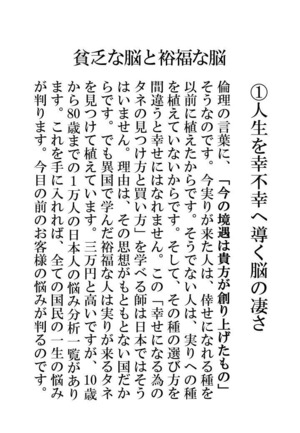 貧乏な脳と裕福な脳
①人生を幸不幸へ導く脳の凄さ
倫理の言葉に、「今の境遇は貴方が創り上げたもの」
そうなのです。今実りが来た人は、倖せになれる種を
以前に植えたからです。そうでない人は、実りへの種
を植えていないからです。そして、その種の選び方を
間違うと幸せにはなれません。この「幸せになる為の
タネの見つけ方と買い方」を学べる師は日本ではそう
はいません。理由は、その思想がもともとない国だか
らです。でも異国で学んだ裕福な人は実りが来るタネ
を見つけて植えています。三万円と高いですが、10歳
から80歳までの1万人の日本人の悩み分析一覧があり
ます。これを手に入れれば、全ての国民の一生の悩み
が判ります。今目の前のお客様の悩みが判るのです。